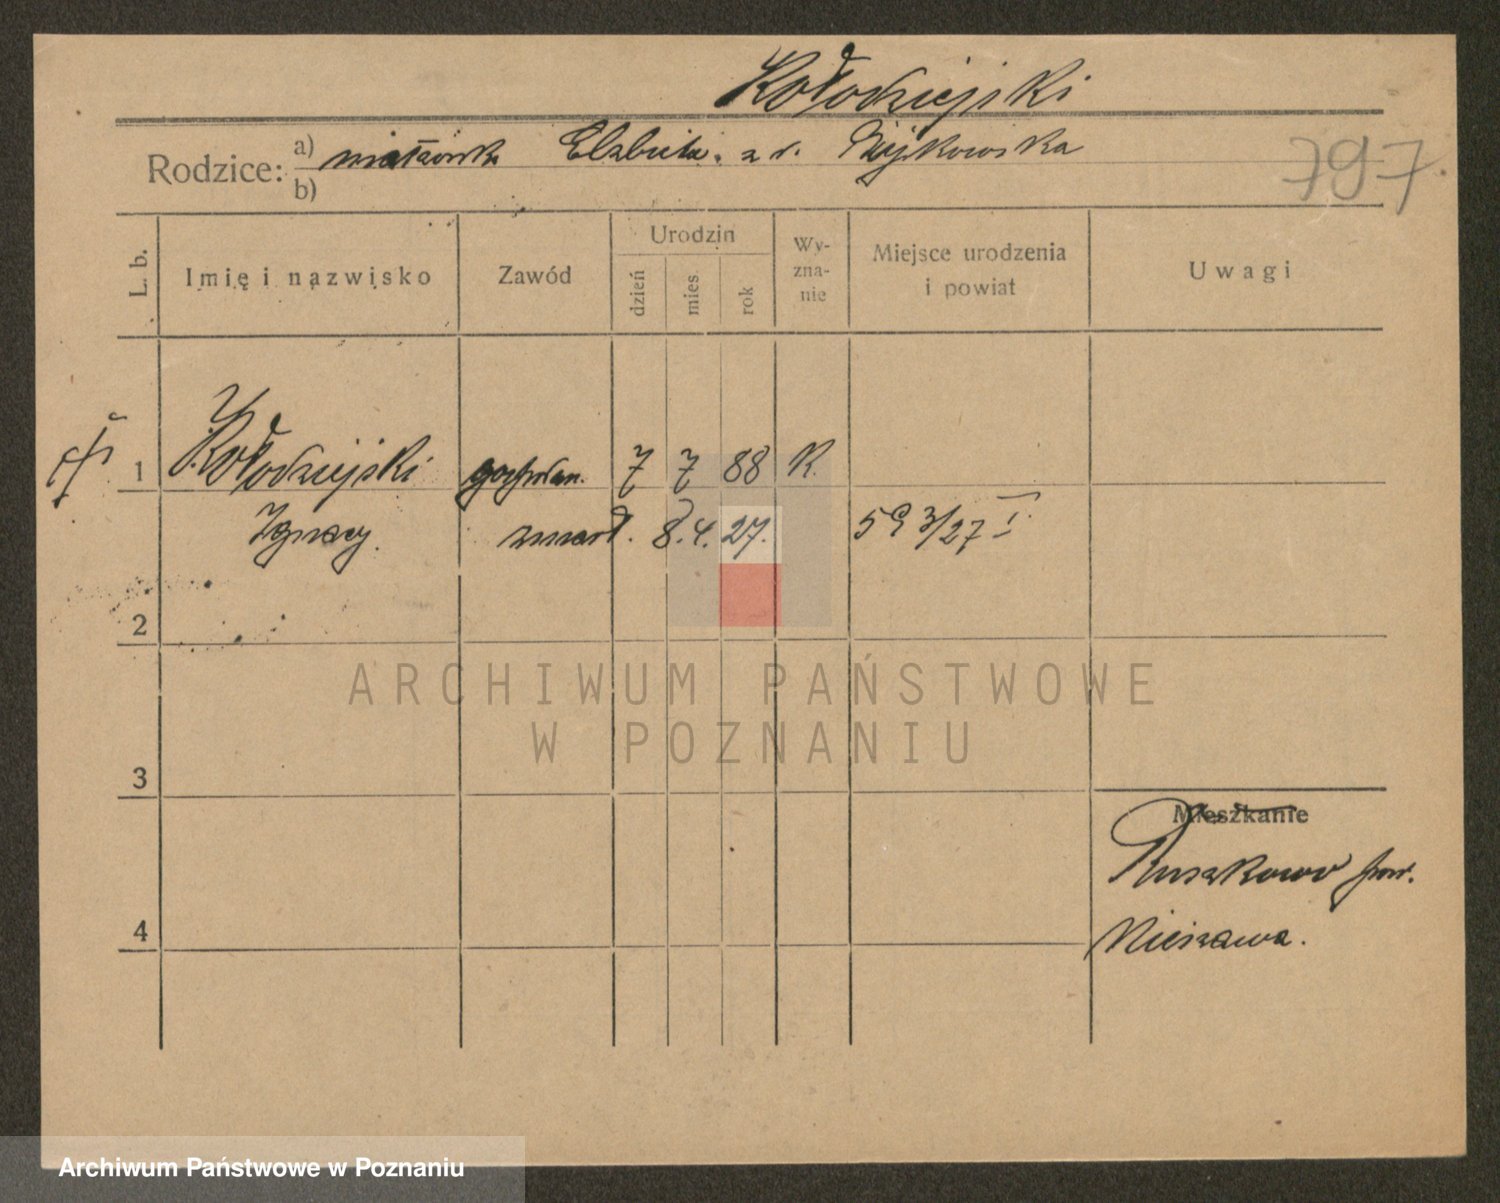 Kołodziejski
Rodzice: a) małżonka Elżbieta. z d.
b)
797.
L. b. Imię i nazwisko Zawód Urodzin dzień mies rok Wyznanie Miejsce urodzenia i powiat Uwagi
1 Kołodziejski 7 7 88 K.
Ignacy. zmarł. 8. 4. 27. 59 3/27 I.
2
3
4
Mieszkanie
Ruszkowo pow.
Nieszawa.
ARCHIWUM PAŃSTWOWE
W POZNANIU
Archiwum Państwowe w Poznaniu